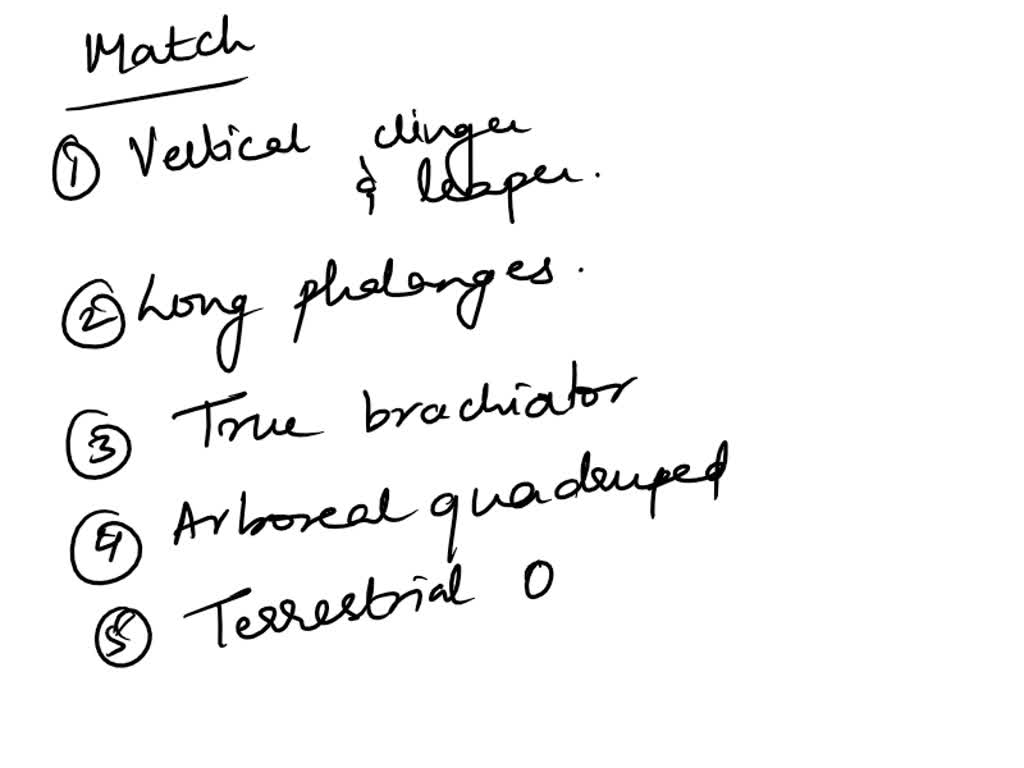 Match
① Vertical clinger
& leaper.
② Long phalanges.
③ True brachiator
④ Arboreal quadruped
⑤ Terrestrial O